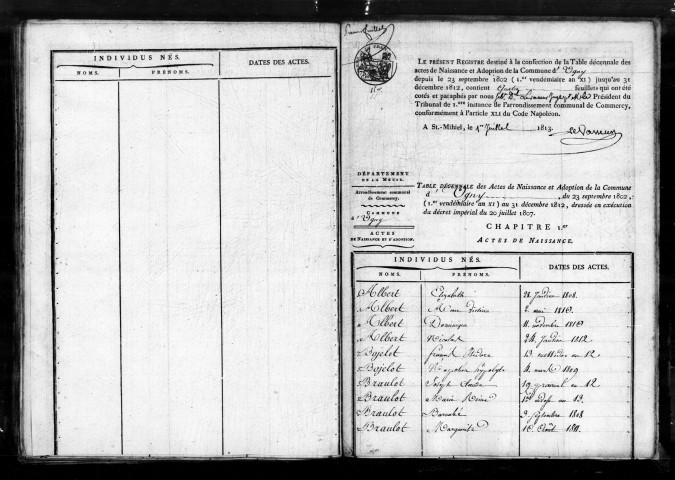 INDIVIDUS NÉS.
DATES DES ACTES.
NOMS.
PRÉNOMS.
LE PRÉSENT REGISTRE destiné à la confection de la Table décennale des
actes de Naissance et Adoption de la Commune d'Ugny
depuis le 23 septembre 1802 (1.er vendémiaire an XI) jusqu'au 31
décembre 1812, contient feuillets qui ont été
cotés et paraphés par nous Président du
Tribunal de 1.ere instance de l'arrondissement communal de Commercy,
conformément à l'article XLI du Code Napoléon.
A St.-Mihiel, le 1er Juillet 1813.
DÉPARTEMENT
DE LA MEUSE.
Arrondissement communal
de Commercy.
COMMUNE
d'Ugny
ACTES
DE NAISSANCE ET D'ADOPTION.
TABLE DÉCENNALE des Actes de Naissance et Adoption de la Commune
d'Ugny, du 23 septembre 1802,
(1.er vendémiaire an XI) au 31 décembre 1812, dressée en exécution
du décret impérial du 20 juillet 1807.
CHAPITRE I.er
ACTES DE NAISSANCE.
INDIVIDUS NÉS.
DATES DES ACTES.
NOMS.
PRÉNOMS.
Albert Elizabeth 28 Janvier 1808.
Albert Marie 2 mai 1810.
Albert Dominique 11 novembre 1810
Albert Nicolas 24 Janvier 1812
Bajelot françois 13 an 12
Bajelot Napoléon hypolyte 4 avril 1809
Braulot Joseph 19 prairial an 12
Braulot Marie Reine an 13.
Braulot Barnabé 9 Septembre 1808
Braulot Marguerite 16 Août 1811.